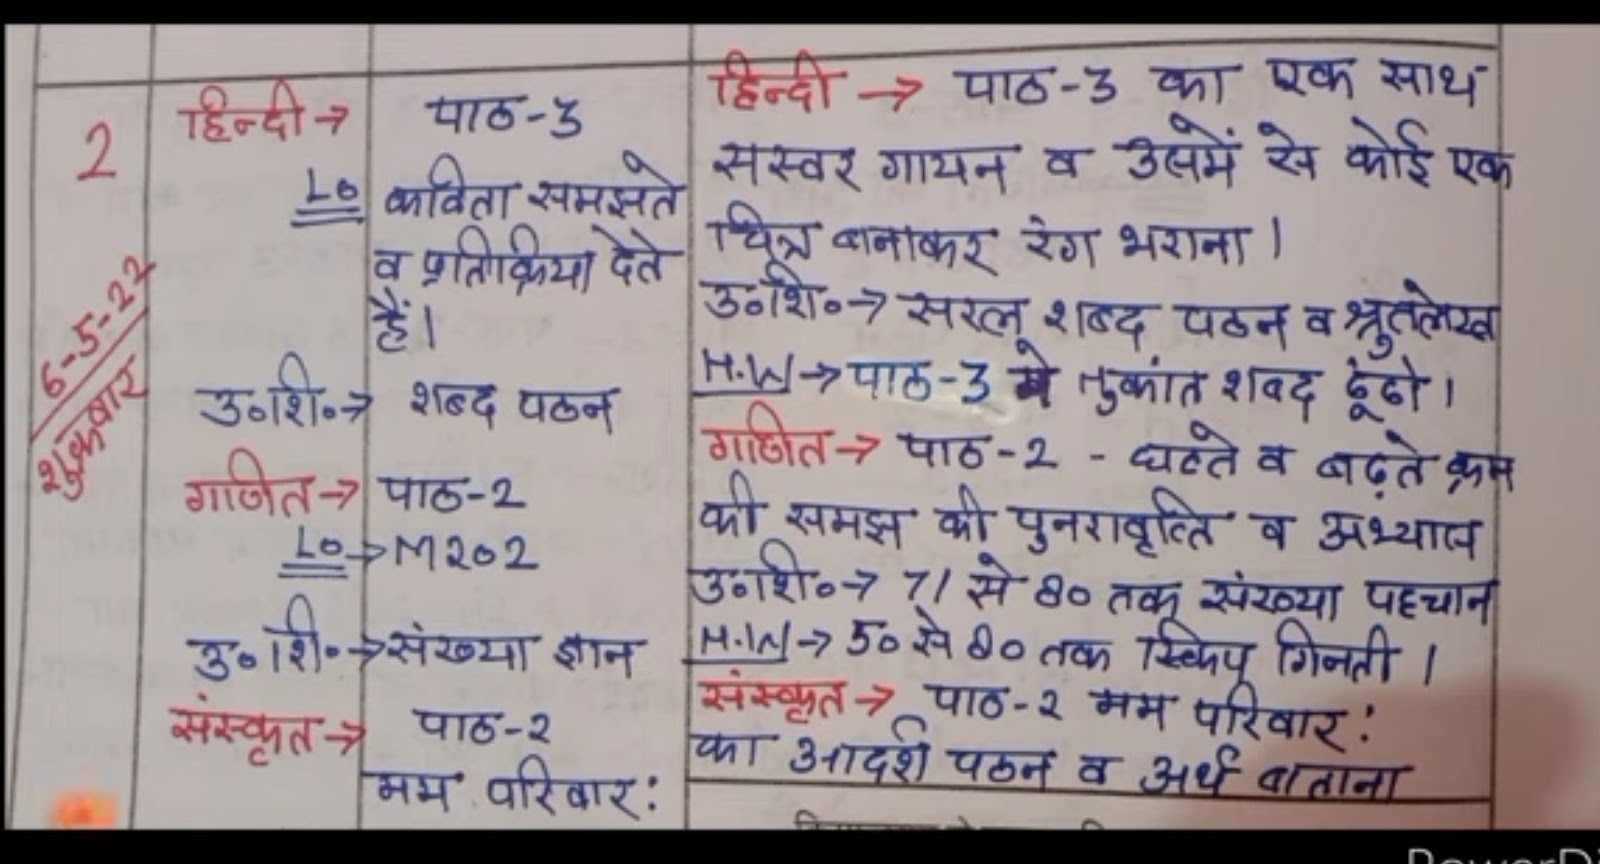 2
6-5-22
शुक्रवार
हिन्दी→ पाठ-3
LO कविता समझते
व प्रतिक्रिया देते
हैं।
उ॰शि॰→ शब्द पठन
गणित→ पाठ-2
LO→M202
उ॰शि॰→संख्या ज्ञान
संस्कृत→ पाठ-2
मम परिवार:
हिन्दी → पाठ-3 का एक साथ
सस्वर गायन व उसमें से कोई एक
चित्र बनाकर रंग भराना।
उ॰शि॰→ सरल शब्द पठन व श्रुतलेख
H.W→ पाठ-3 में तुकांत शब्द ढूंढो।
गणित→ पाठ-2 - घटते व बढ़ते क्रम
की समझ की पुनरावृत्ति व अभ्यास
उ॰शि॰→ 71 से 80 तक संख्या पहचान
H.W→ 50 से 80 तक स्किप गिनती।
संस्कृत→ पाठ-2 मम परिवार:
का आदर्श पठन व अर्थ बताना